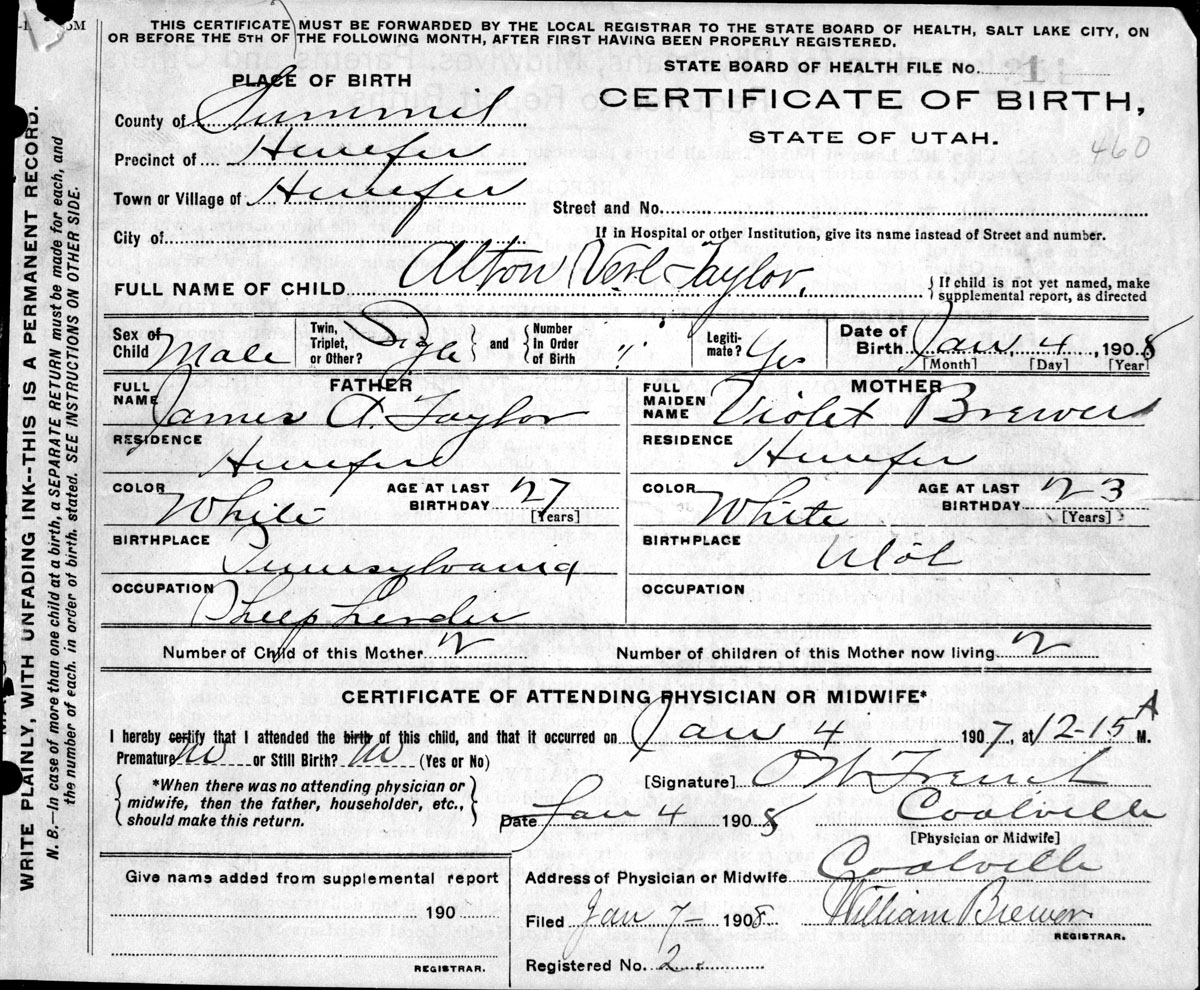 THIS CERTIFICATE MUST BE FORWARDED BY THE LOCAL REGISTRAR TO THE STATE BOARD OF HEALTH, SALT LAKE CITY, ON
OR BEFORE THE 5TH OF THE FOLLOWING MONTH, AFTER FIRST HAVING BEEN PROPERLY REGISTERED.
STATE BOARD OF HEALTH FILE No. 1
PLACE OF BIRTH
CERTIFICATE OF BIRTH,
STATE OF UTAH.
460
County of Summit
Precinct of Henefer
Town or Village of Henefer
Street and No.
City of
If in Hospital or other Institution, give its name instead of Street and number.
FULL NAME OF CHILD Alton Verl Taylor.
{ If child is not yet named, make supplemental report, as directed
Sex of Child Male
Twin, Triplet, or Other? Single and { Number In Order of Birth "
Legiti-mate? Yes
Date of Birth Jan. 4, 1908
[Month] [Day] [Year]
FATHER
FULL NAME James A. Taylor
RESIDENCE Henefer
COLOR White AGE AT LAST BIRTHDAY 27 [Years]
BIRTHPLACE Pennsylvania
OCCUPATION Sheep Herder
MOTHER
FULL MAIDEN NAME Violet Brewer
RESIDENCE Henefer
COLOR White AGE AT LAST BIRTHDAY 23 [Years]
BIRTHPLACE Utah
OCCUPATION
Number of Child of this Mother 2 Number of children of this Mother now living 2
CERTIFICATE OF ATTENDING PHYSICIAN OR MIDWIFE*
I hereby certify that I attended the birth of this child, and that it occurred on Jan 4 1907, at 12-15 A M.
Premature No or Still Birth? No (Yes or No)
{ *When there was no attending physician or midwife, then the father, householder, etc., should make this return. }
[Signature]
Date Jan 4 1908 Coalville
[Physician or Midwife]
Give name added from supplemental report
190
REGISTRAR.
Address of Physician or Midwife Coalville
Filed Jan 7- 1908 William Brewer
REGISTRAR.
Registered No. 2
WRITE PLAINLY, WITH UNFADING INK--THIS IS A PERMANENT RECORD.
N. B.—In case of more than one child at a birth, a SEPARATE RETURN must be made for each, and
the number of each, in order of birth, stated. SEE INSTRUCTIONS ON OTHER SIDE.